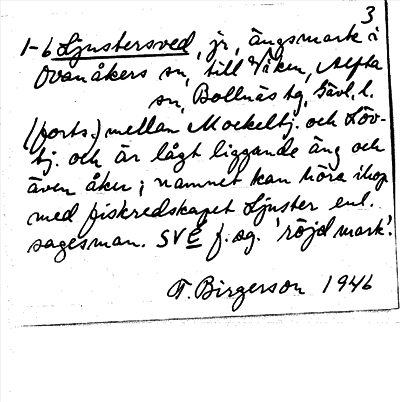 3
1-6 Ljustersved, jr, ängsmark i
Ovanåkers sn, till Viken, Alfta
sn, Bollnäs tg, Gävl. l.
(forts.) mellan Mockeltj. och Löv-
tj. och är lågt liggande äng och
även åker; namnet kan höra ihop
med fiskredskapet Ljuster enl.
sagesman. SVE f. og. 'röjd mark'.
F. Birgerson 1946